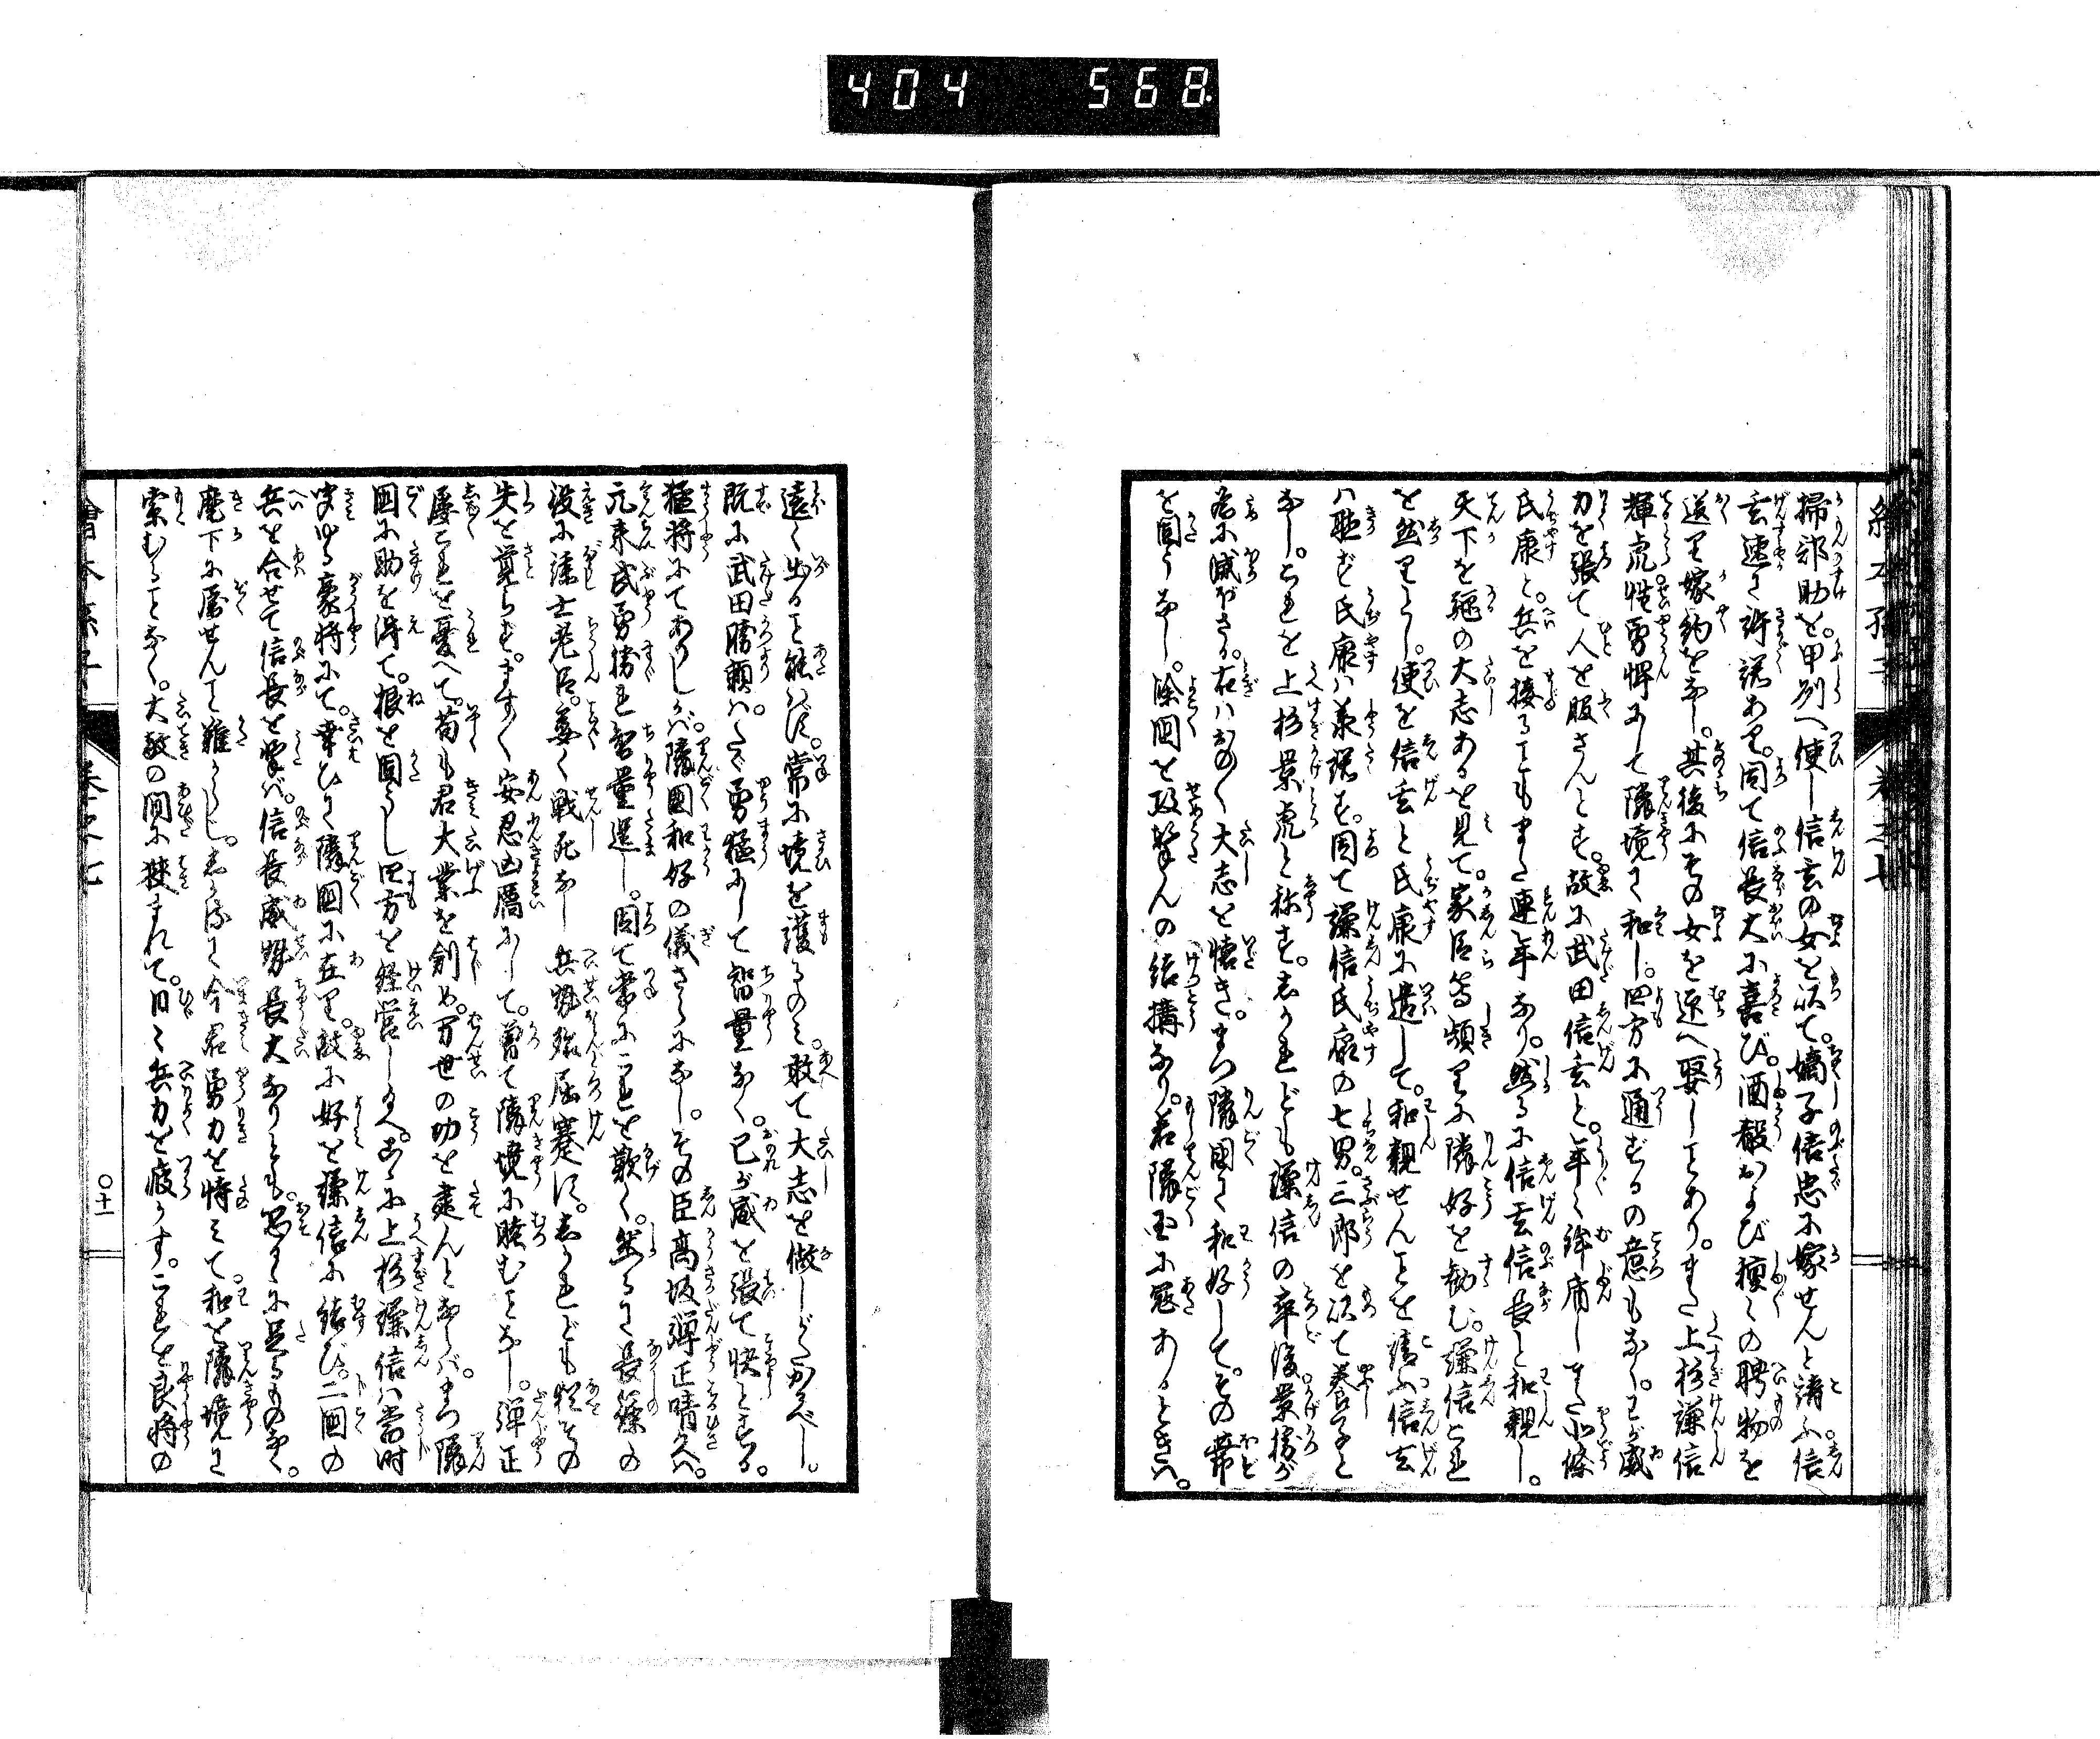 404 568
掃部助を。甲刕へ使し信玄の女を以て。嫡子信忠に嫁せんと請ふ。信
玄速に許諾あり。因て信長大に喜び。酒殽および種々の聘物を
送り嫁約をなし。其後にその女を迎へ娶しことあり。また上杉謙信
輝虎性勇悍にして隣境に和し。四方に通ずるの意もなく。わが威
力を張て人を服さんとす。故に武田信玄と。年々鉾楯しまた北條
氏康と。兵を接ることもまた連年なり。然るに信玄信長と和親し。
天下を の大志あるを見て。家臣等頻りに隣好を勧む。謙信これ
を然りとし。使を信玄と氏康に遣して。和親せんことを請ふ信玄
ハ聴ず氏康ハ義諾す。因て謙信氏康の七男。三郎を以て養子と
なし。これを上杉景虎と称す。しかれども謙信の卒後景勝が
為に滅ぼさる。右ハおの〳〵大志を懐き。まづ隣国に和好して。その蒂
を固うなし。除国を攻撃んの結搆なり。若隣玉に寇あるときハ。
遠く出ること能ハず。常に境を護るのミ。敢て大志を做しがたかるべし。
既に武田勝頼ハ。たゞ勇猛にして智量なく。己が威を張て快とする。
猛将にてありしかバ。隣國和好の儀さらになし。その臣高坂弾正晴久ハ。
元来武勇勝れ智量逞し。因て常にこれを歎く。然るに長篠の
没に謀士老臣。悉く戦死なし兵勢弱屈蹇す。しかれども猶その
失を覚らず。ます〳〵安忍凶厲にして。曽て隣境に睦むことなし。弾正
屡これを憂へて。苟も君大業を創め。万世の功を建んとならバ。まづ隣
国に助を得て。根を固うし四方を経営し給へ。こゝに上杉謙信ハ當時
聞ゆる豪将にて。幸ひに隣国に在り。故に好を謙信に結び。二国の
兵を合せて信長を撃バ。信長威勢長大なりとも。恐るゝに足るものなく。
麾下に属せんこと難からじ。しか に今君勇力を恃ミて。和を隣境に
索むることなく。大敵の間に挟まれて。日々兵力を疲らす。これを良将の
繪本 卷之七 〇十一